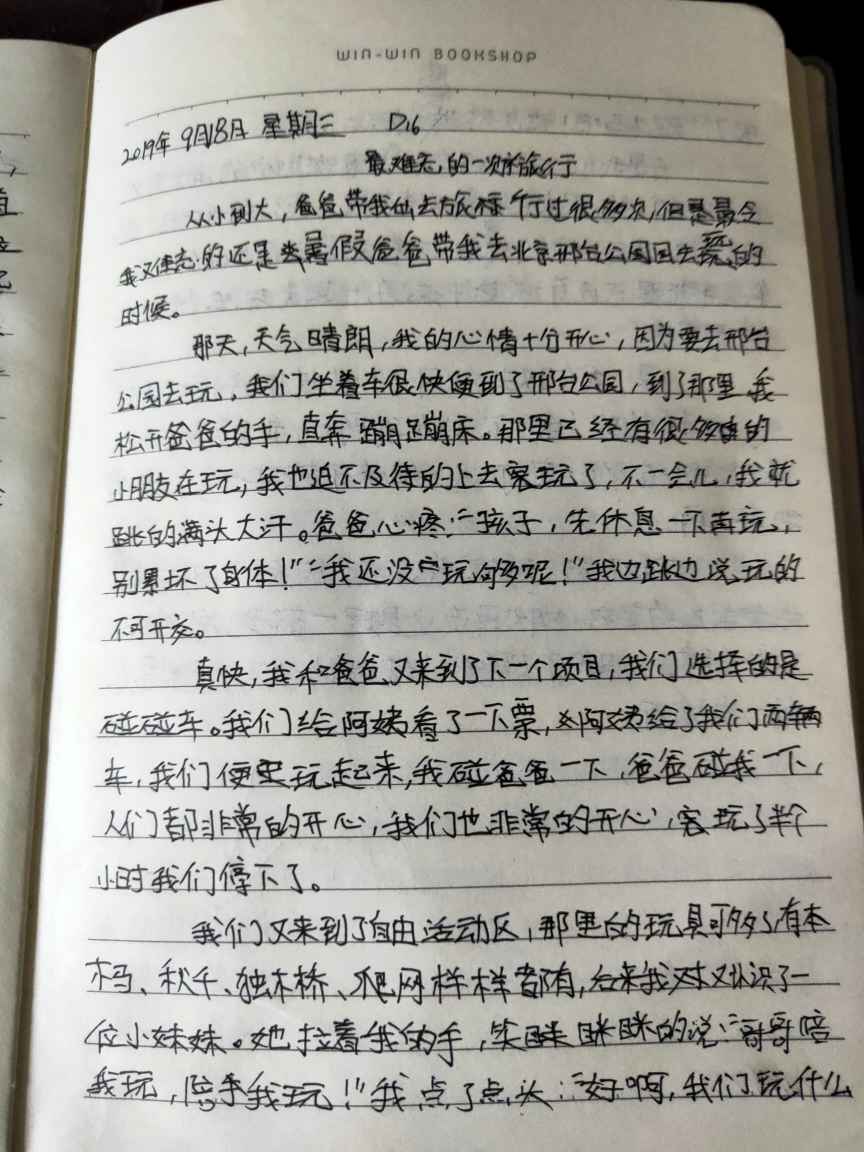 WIN-WIN BOOKSHOP
2019年9月18日 星期三 D16
最难忘的一次旅行
从小到大，爸爸带我去旅行过很多次，但是最令
我难忘的还是暑假爸爸带我去北京邢台公园去玩的
时候。
那天，天气晴朗，我的心情十分开心，因为要去邢台
公园去玩，我们坐着车很快便到了邢台公园，到了那里我
松开爸爸的手，直奔蹦蹦床。那里已经有很多的
小朋友在玩，我也迫不及待的上去玩了，不一会儿，我就
跳的满头大汗。爸爸心疼：“孩子，先休息一下再玩，
别累坏了身体！”“我还没玩够呢！”我边跳边说，玩的
不可开交。
真快，我和爸爸又来到了下一个项目，我们选择的是
碰碰车。我们给阿姨看了一下票，阿姨给了我们两辆
车，我们便玩起来，我碰爸爸一下，爸爸碰我一下，
人们都非常的开心，我们也非常的开心，玩了半个
小时我们停下了。
我们又来到了自由活动区，那里的玩具可多了有木
马、秋千、独木桥、爬网样样都有，后来我又认识了一
位小妹妹。她拉着我的手，笑眯眯的说：“哥哥陪
我玩，陪我玩！”我点了点头：“好啊，我们玩什么